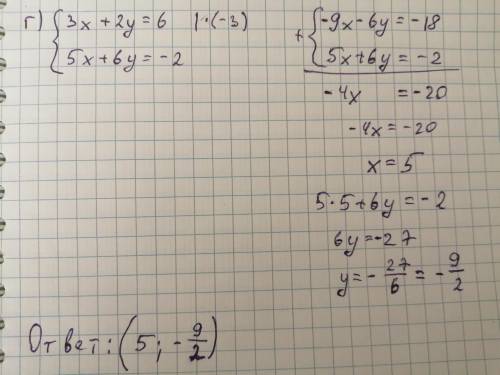 г) { 3x + 2y = 6 | · (-3)
5x + 6y = -2
+ { -9x - 6y = -18
5x + 6y = -2
-4x = -20
-4x = -20
x = 5
5·5 + 6y = -2
6y = -27
y = - 27/6 = - 9/2
Ответ: (5; - 9/2)